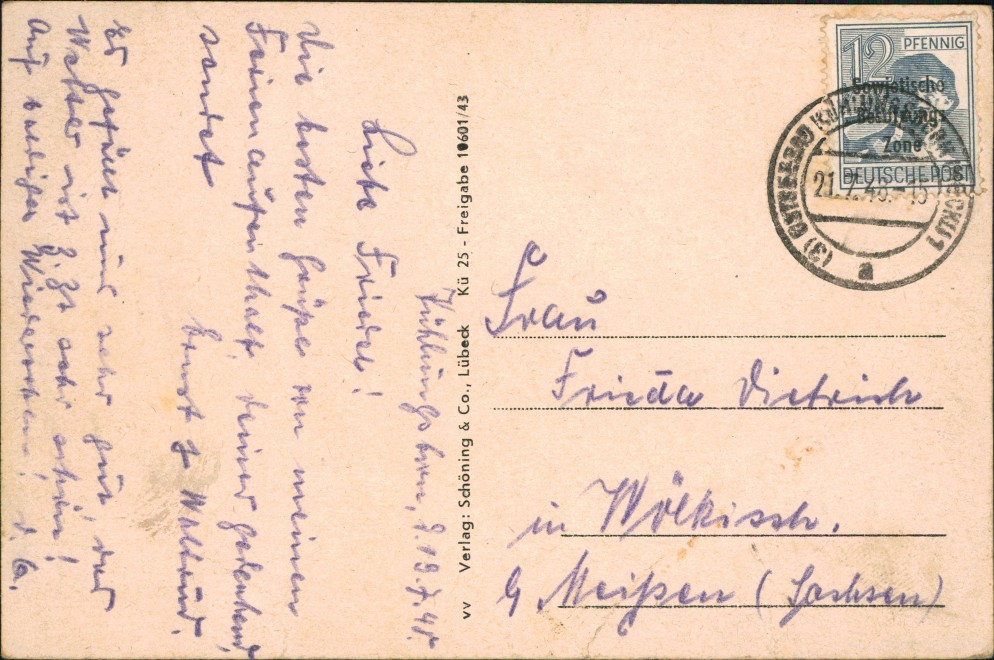 Kühlungsborn, d. 19.7.48.
Liebe Friedel!
Die besten Grüße von meinem
Ferienaufenthalt, deiner gedenkend,
sendet
Ernst & Waltraud.
Es gefällt mir sehr gut, das
Wetter ist z. Zt. sehr schön!
Auf baldiges Wiedersehen! d. O.
VV Verlag: Schöning & Co., Lübeck Kü 25 - Freigabe 10601/43
12 PFENNIG
Sowjetische
Besatzungs-
Zone
DEUTSCHE POST
(3) OSTSEEBAD KÜHLUNGSBORN (MECKL) 1
21.7.48.-15
a
Frau
Frieda Dietrich
in Wölkisch.
b/ Meißen (Sachsen)